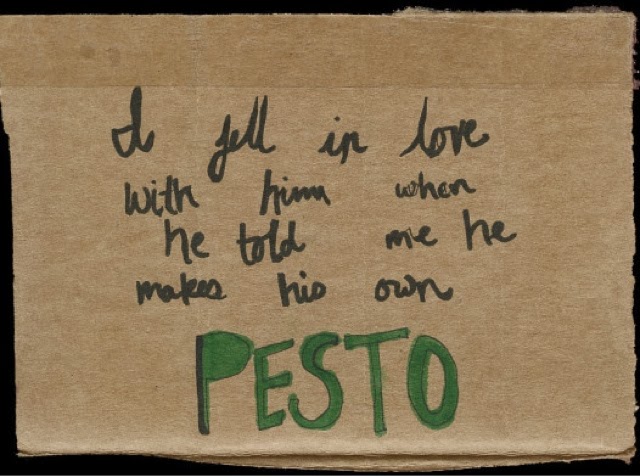 I fell in love
with him when
he told me he
makes his own
PESTO